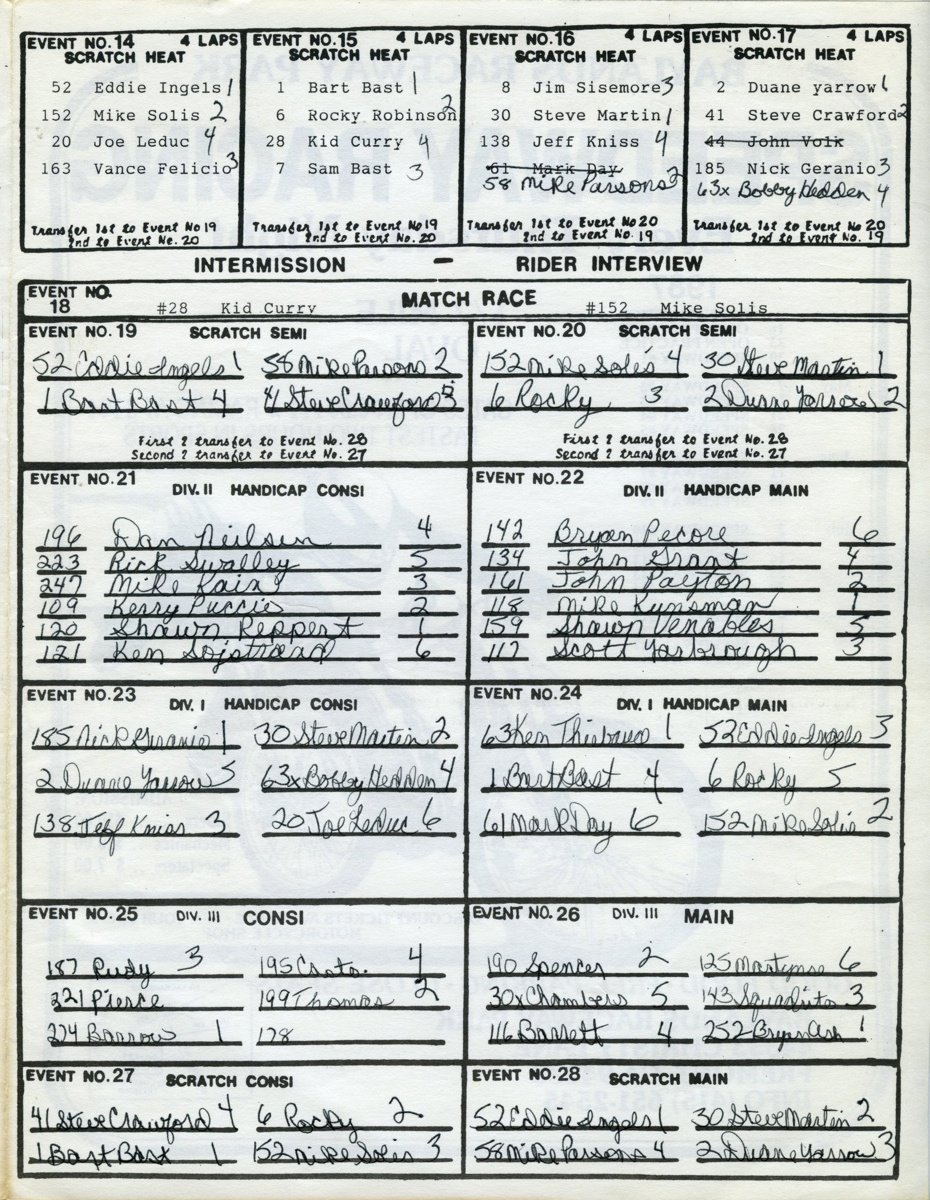 EVENT NO.14 4 LAPS
SCRATCH HEAT
52 Eddie Ingels 1
152 Mike Solis 2
20 Joe Leduc 4
163 Vance Felicio 3
Transfer 1st to Event No 19
2nd to Event No. 20
EVENT NO.15 4 LAPS
SCRATCH HEAT
1 Bart Bast 1
6 Rocky Robinson 2
28 Kid Curry 4
7 Sam Bast 3
Transfer 1st to Event No 19
2nd to Event No. 20
EVENT NO.16 4 LAPS
SCRATCH HEAT
8 Jim Sisemore 3
30 Steve Martin 1
138 Jeff Kniss 4
61 Mark Day
58 Mike Parsons 2
Transfer 1st to Event No 20
2nd to Event No. 19
EVENT NO.17 4 LAPS
SCRATCH HEAT
2 Duane yarrow 1
41 Steve Crawford 2
44 John Volk
185 Nick Geranio 3
63x Bobby Hedden 4
Transfer 1st to Event No 20
2nd to Event No. 19
INTERMISSION - RIDER INTERVIEW
EVENT NO. 18 MATCH RACE
#28 Kid Curry #152 Mike Solis
EVENT NO.19 SCRATCH SEMI
52 Eddie Ingels 1 58 Mike Parsons 2
1 Bart Bast 4 41 Steve Crawford 3
First 2 transfer to Event No. 28
Second 2 transfer to Event No. 27
EVENT NO.20 SCRATCH SEMI
152 Mike Soles 4 30 Steve Martin 1
6 Rocky 3 2 Duane Yarrow 2
First 2 transfer to Event No. 28
Second 2 transfer to Event No. 27
EVENT NO.21
DIV. II HANDICAP CONSI
196 Dan Neilsen 4
223 Rick Swalley 5
247 Mike Fain 3
109 Kerry Puccio 2
120 Shawn Reppert 1
121 Ken Sojstrand 6
EVENT NO.22
DIV. II HANDICAP MAIN
142 Bryan Pecore 6
134 John Grant 4
161 John Payton 2
118 Mike Kunsman 1
159 Shawn Venables 5
117 Scott Yarbrough 3
EVENT NO.23
DIV. I HANDICAP CONSI
185 Nick Geranio 1 30 Steve Martin 2
2 Duane Yarrow 5 63x Bobby Hedden 4
138 Jeff Kniss 3 20 Joe Leduc 6
EVENT NO.24
DIV. I HANDICAP MAIN
63 Ken Thibaud 1 52 Eddie Ingels 3
1 Bart Bast 4 6 Rocky 5
61 Mark Day 6 152 Mike Solis 2
EVENT NO.25 DIV. III CONSI
187 Rudy 3 195 4
221 Pierce 199 Thomas 2
224 Barrow 1 178
EVENT NO.26 DIV. III MAIN
190 Spencer 2 125 6
30x Chambers 5 143 3
116 Barrett 4 252 Bryan Ash 1
EVENT NO.27
SCRATCH CONSI
41 Steve Crawford 4 6 Rocky 2
1 Bart Bast 1 152 Mike Solis 3
EVENT NO.28
SCRATCH MAIN
52 Eddie Ingels 1 30 Steve Martin 2
58 Mike Parsons 4 2 Duane Yarrow 3